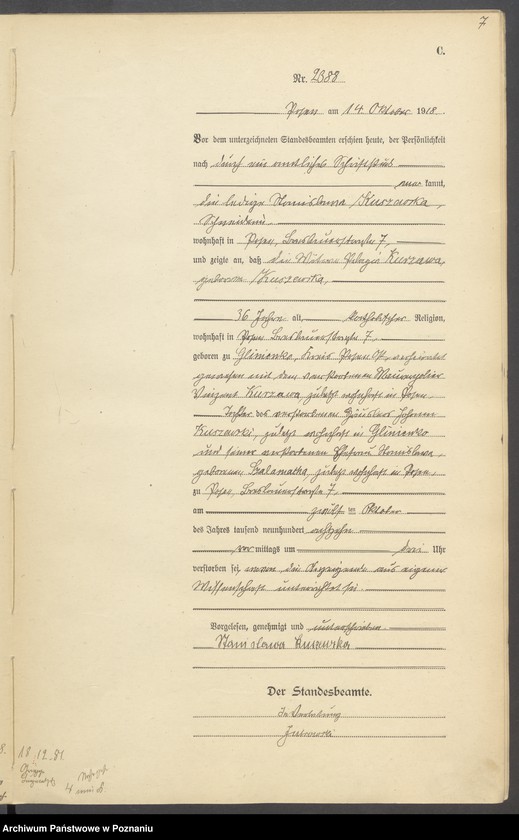 7
C.
Nr. 2388
Posen am 14 Oktober 1918.
Vor dem unterzeichneten Standesbeamten erschien heute, der Persönlichkeit
nach durch ein amtliches Schriftstück
aner kannt,
die ledige Stanislawa Kuszewska,
Schneiderin,
wohnhaft in Posen, Breslauerstraße 7,
und zeigte an, daß die Witwe Pelagia Kurzawa,
geborene Kuszewska,
36 Jahre alt, katholischer Religion,
wohnhaft in Posen Breslauerstraße 7,
geboren zu Glinienko, Kreis Posen verheiratet
gewesen mit dem verstorbenen Maurerpolier
Kurzawa, zuletzt wohnhaft in Posen,
Tochter des verstorbenen Häuslers Johann
Kuszewski, zuletzt wohnhaft in Glinienko
und seiner verstorbenen Ehefrau Stanislawa,
geborenen zuletzt wohnhaft in Posen,
zu Posen, Breslauerstraße 7,
am zwölften Oktober
des Jahres tausend neunhundert achtzehn
vor mittags um drei Uhr
verstorben sei, wovon die Anzeigende aus eigener
Wissenschaft unterrichtet sei.
Vorgelesen, genehmigt und unterschrieben
Stanisława Kuszewska
Der Standesbeamte.
In Vertretung
18.12.81.
Archiwum Państwowe w Poznaniu